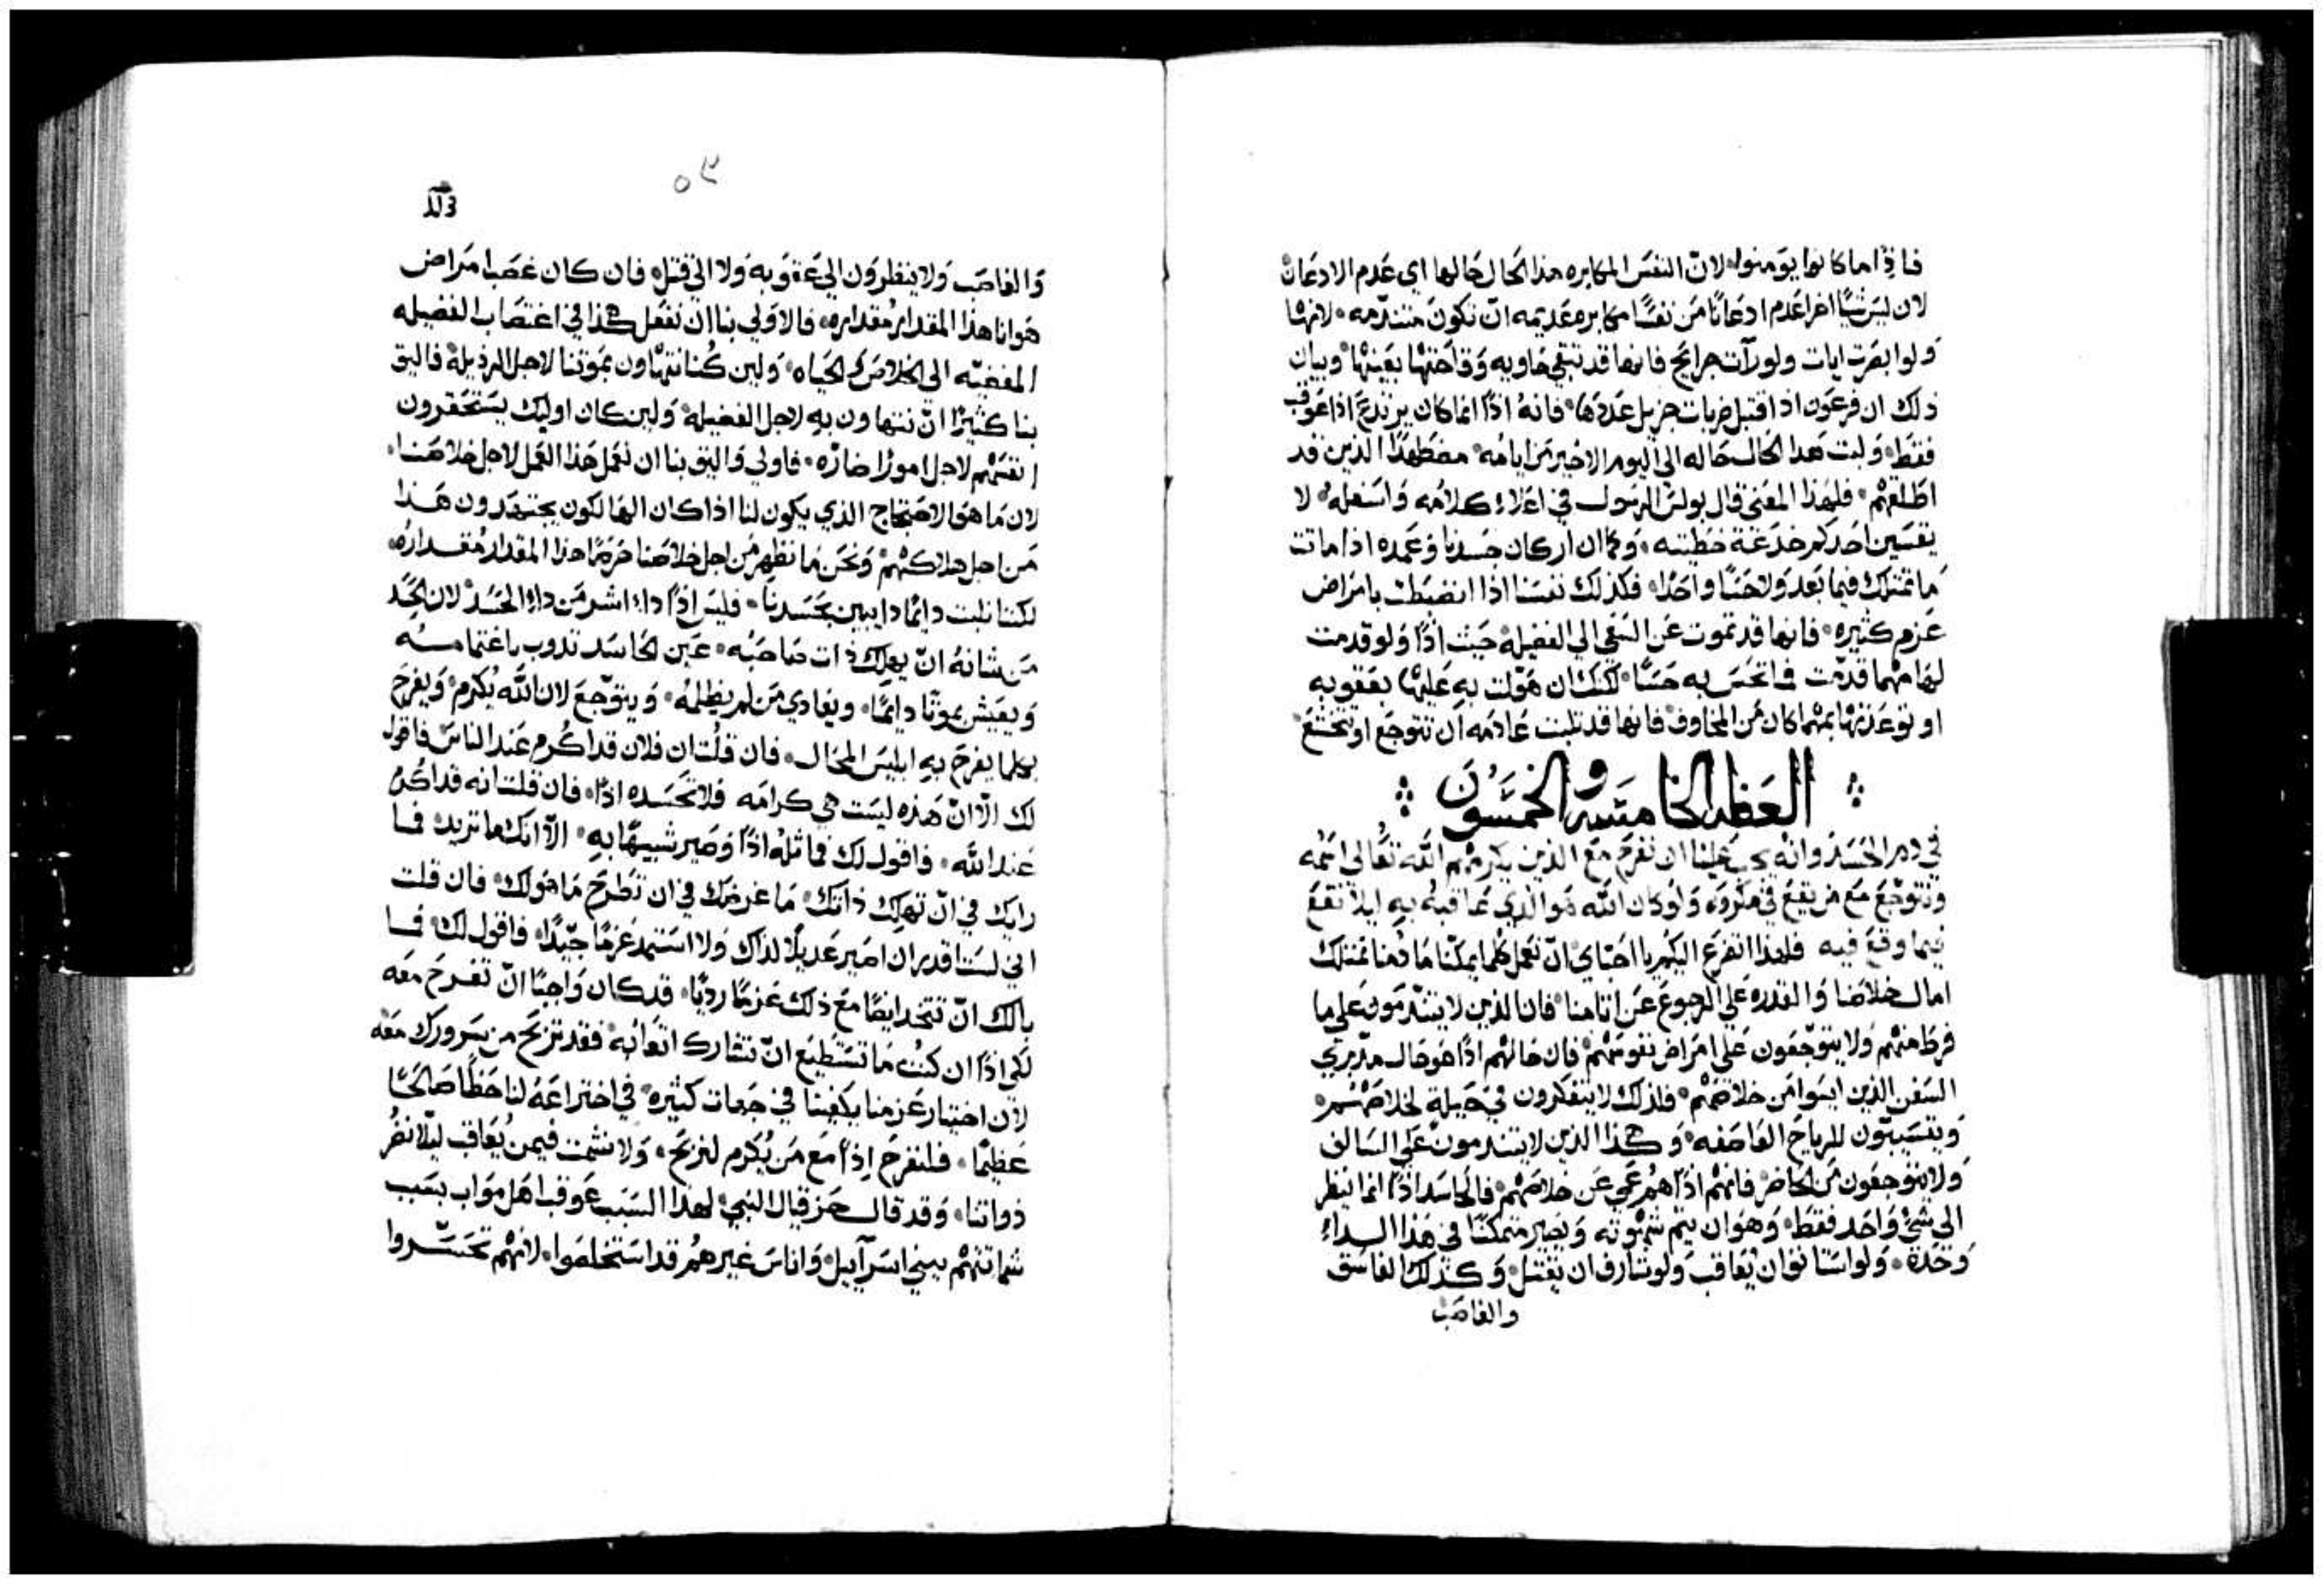 فاذًا ما كانوا يومنوا لان النفس المكابره هذا الحال حالها اي عدم الادعان
لان ليس شيًا اخر اعدم ادعانًا من نفسًا مكابره عديمه ان تكون متندمه لانها
ولو ابصرت ايات ولو رات جرايح فانها قد تبقي حاويه وقاحتها بعينها وبيان
ذلك ان فرعون اذ اقتبل ضربات جزيل عددها فانه اذًا انما كان يرتدع اذا عوقب
فقط ولبت هدا الحال حاله الي اليوم الاخير من ايامه مضطهدًا الذين قد
اطلقهم فلهذا المعنى قال بولس الرسول في اعلاء كلامه واسفله لا
يقسين احدكم خدعة خطيته وكما ان اركان جسدنا وعمده اذا ماتت
ما تمتلك فيما بعد ولا حسًا واحدًا فكذلك نفسنا اذا انضبطت بامراض
عزم كثيره فانها قد تموت عن السعي الي الفضيله حيث اذًا ولو قدمت
لها مهما قدمت فما تحس به حسًا لكنك ان هولت به عليها بعقوبه
او توعدتها بمهما كان من المخاوف فانها قد تلبت عادمه ان تتوجع او تخشع
العظه الخامسه والخمسون
في دم الحسد وانه يجب علينا ان نفرح مع الذين يكرمهم الله تعالي اسمه
ونتوجع مع من يقع في مكروه ولو كان الله هو الذي عاقبه به ليلا نقع
فيما وقع فيه فلهذا اتضرع اليكم يا احباي ان نعمل كلما يمكنا ما دمنا نمتلك
امال خلاصنا والقدره علي الرجوع عن اتامنا فان الذين لا يتندمون علي ما
فرط منهم ولا يتوجعون علي امراض نفوسهم فان حالهم اذًا هو حال مدبري
السفن الذين ايسوا من خلاصهم فلذلك لا يتفكرون في حيلة لخلاصهم
ويتسيبون للرياح العاصفه وهكذا الذين لا يتندمون علي السالف
ولا يتوجعون من الحاضر فانهم اذًا هم عمي عن خلاصهم فالحاسد اذًا انما ينظر
الي شي واحد فقط وهو ان يتم شهوته ويصير متمكنًا في هذا الداء
وحده ولو استانف ان يعاقب ولو شارف ان يقتل وكذلك الفاسق
والغاصب
٥٢
والغاصب ولا ينظرون الي عقوبه ولا الي قتل فان كان غصب امراض
هوانا هذا المقدار مقداره فالاولي بنا ان نفعل هكذا في اغتصاب الفضيله
المفضيه الي الخلاص والحياه ولين كنا نتهاون بموتنا لاجل الرذيلة فاليق
بنا كثيرًا ان نتهاون به لاجل الفضيله ولين كان اوليك يستحقرون
انفسهم لاجل امورًا ضاره فاولي واليق بنا ان نعمل هذا العمل لاجل خلاصنا
لان ما هو الاحتجاج الذي يكون لنا اذا كان الهالكون يجتهدون هذا
من اجل هلاكهم ونحن ما نظهر من اجل خلاصنا حرصًا هذا المقدار مقداره
لكننا نلبت دايمًا دايبين بحسدنا فليس اذًا داء اشر من داء الحسد لان الحسد
من شانه ان يهلك ذات صاحبه عين الحاسد تدوب باغتمامه
ويعيش بموتًا دايمًا ويعادي من لم يظلمه ويتوجع لان الله يُكرم ويفرح
بكلما يفرح به ابليس المحال فان قلت ان فلان قد اكرم عند الناس فاقول
لك الا ان هذه ليست هي كرامه فلا تحسده اذًا فان قلت انه قد اكرم
عند الله فاقول لك فماثله اذًا وصير شبيهًا به الا انك ما تريد فما
رايك في ان تهلك ذاتك ما غرضك في ان تطرح ما هو لك فان قلت
اني لست اقدر ان اصير عديلًا لذاك ولا استمد عزمًا جيدًا فاقول لك فما
بالك ان تتخد ايضًا مع ذلك عزمًا رديًا قد كان واجبًا ان تفرح معه
لكي اذًا ان كنت ما تستطيع ان تشارك اتعابه فقد تربح من سرورك معه
لان اختيار عزمنا يكفينا في جهات كثيره في اختراعه لنا حظًا صالحًا
عظيمًا فلنفرح اذًا مع من يُكرم لنربح ولا نشمت فيمن يُعاقب ليلا نضر
ذواتنا وقد قال حزقيال النبي لهذا السبب عوقب اهل مواب بسبب
شماتتهم ببني اسرآييل واناس غيرهم قد استخلصوا لانهم تحسروا